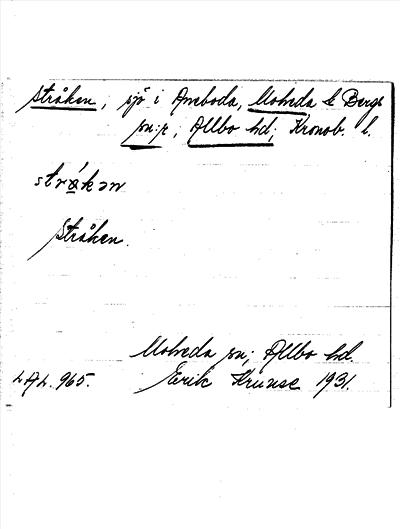 Stråken, sjö i Aneboda, Moheda & Bergs
sn:r, Allbo hd; Kronob. l.
strákən
Stråken.
Moheda sn; Allbo hd.
LAL. 965. Erik Kruuse 1931.